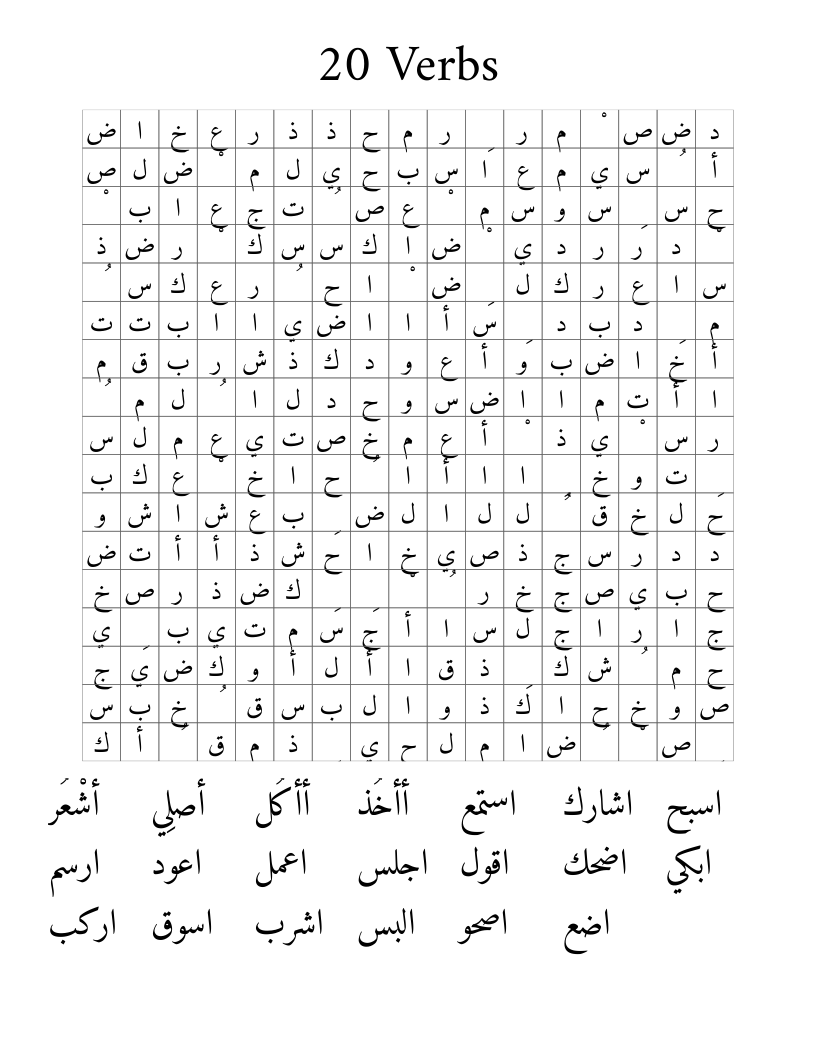 20 Verbs
د ض ص ْ م ر َ ر م ح ذ ذ ر ع خ ا ض
أ ُ س ي م ع ا س ب ح ي ل م ض ل ص
ح س س و س م ع ص ت ج ع ا ب ْ
د ر ر د ي ض ا ك س س ك ر ض ذ
س ا ع ر ك ل ض ْ ا ح ر ع ك س
م د ب د س أ ا ا ض ي ا ا ب ت ت
أ خ ا ض ب و أ ع و د ك ذ ش ر ب ق م
ا أ ت م ا ا ض س و ح د ل ا ل م
ر س ي ذ أ ع م خ ص ت ي ع م ل س
ت و خ ا ا أ ا ح ا خ ع ك ب
ح ل خ ق ل ل ا ل ض ب ع ش ا ش و
د د ر س ج ذ ص ي خ ا ح ش ذ أ أ ت ض
ح ب ي ص ج خ ر ك ض ذ ر ص خ
ج ا ر ا ج ل س ا أ ج س م ت ي ب ي
ح م ش ك ذ ق ا أ ل أ و ك ض ي ج
ص و خ ح ا ك ذ و ا ل ب س ق خ ب س
ص ض ا م ل ح ي ذ م ق أ ك
اسبح اشارك استمع أأخَذ أأكَل أصلِي أشْعَر
ابكي اضحك اقول اجلس اعمل اعود ارسم
اضع اصحو البس اشرب اسوق اركب